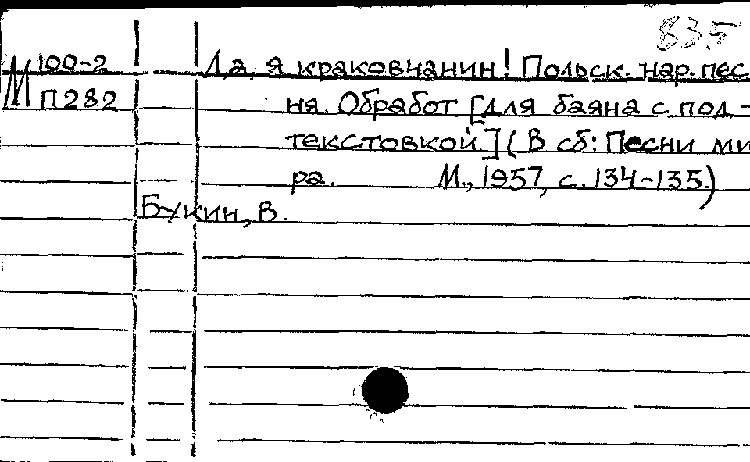 835
М 100-2
П282
Да, я краковчанин! Польск. нар. пес-
ня. Обработ [для баяна с под-
текстовкой.] (В сб: Песни ми-
ра. М., 1957, с. 134-135)
Букин, В.